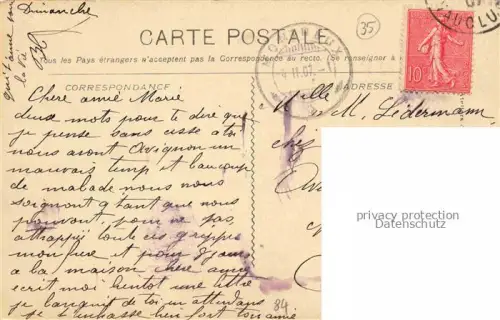 Dimanche
35
CARTE POSTALE
Tous les Pays étrangers n'acceptent pas la Correspondance au recto. (Se renseigner à
CORRESPONDANCE
ADRESSE
10
VAUCLU
Chere amie Marie
deux mots pour te dire que
je pense sans cesse a toi
nous avont Avignon un
mauvais temp et baucoup
de malade nous nous
soignont tant que nous
pouvont, pour ne pas
attrappé toute ces grippes
mon frere et pour 8 jours
a la maison chere amie
ecrit moi bientot une lettre
je languit de toi en attendans
je t'embrasse bien fort ton amie
84
qui t'aime pour
la vie
Mlle
M. Lidermann
chez
privacy protection
Datenschutz